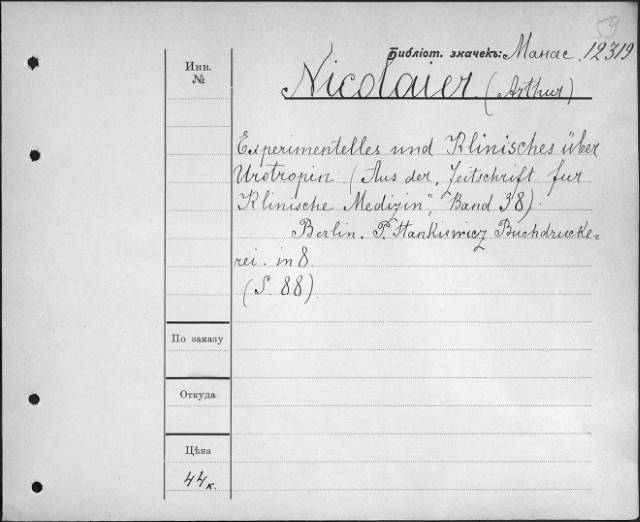 59
Библіот. значекъ: Манас. 12319
Инв.
№
Nicolaier (Arthur)
Experimentelles und Klinisches über
Urotropin (Aus der „Zeitschrift fur
Klinische Medizin", Band 38).
Berlin. P. Stankiewicz Buchdrucke-
rei. in 8.
(S. 88)
По заказу
Откуда
Цѣна
44 к.